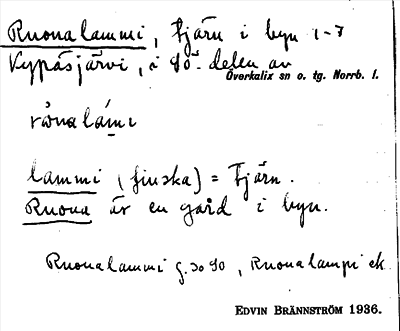 Ruonalammi, Tjärn i byn 1-7
Vypäsjärvi, i SÖ. delen av
Överkalix sn o. tg. Norrb. l.
lammi (finska) = Tjärn.
Ruona är en gård i byn.
Ruonalammi g. 30 SO, Ruonalampi ek.
EDVIN BRÄNNSTRÖM 1936.